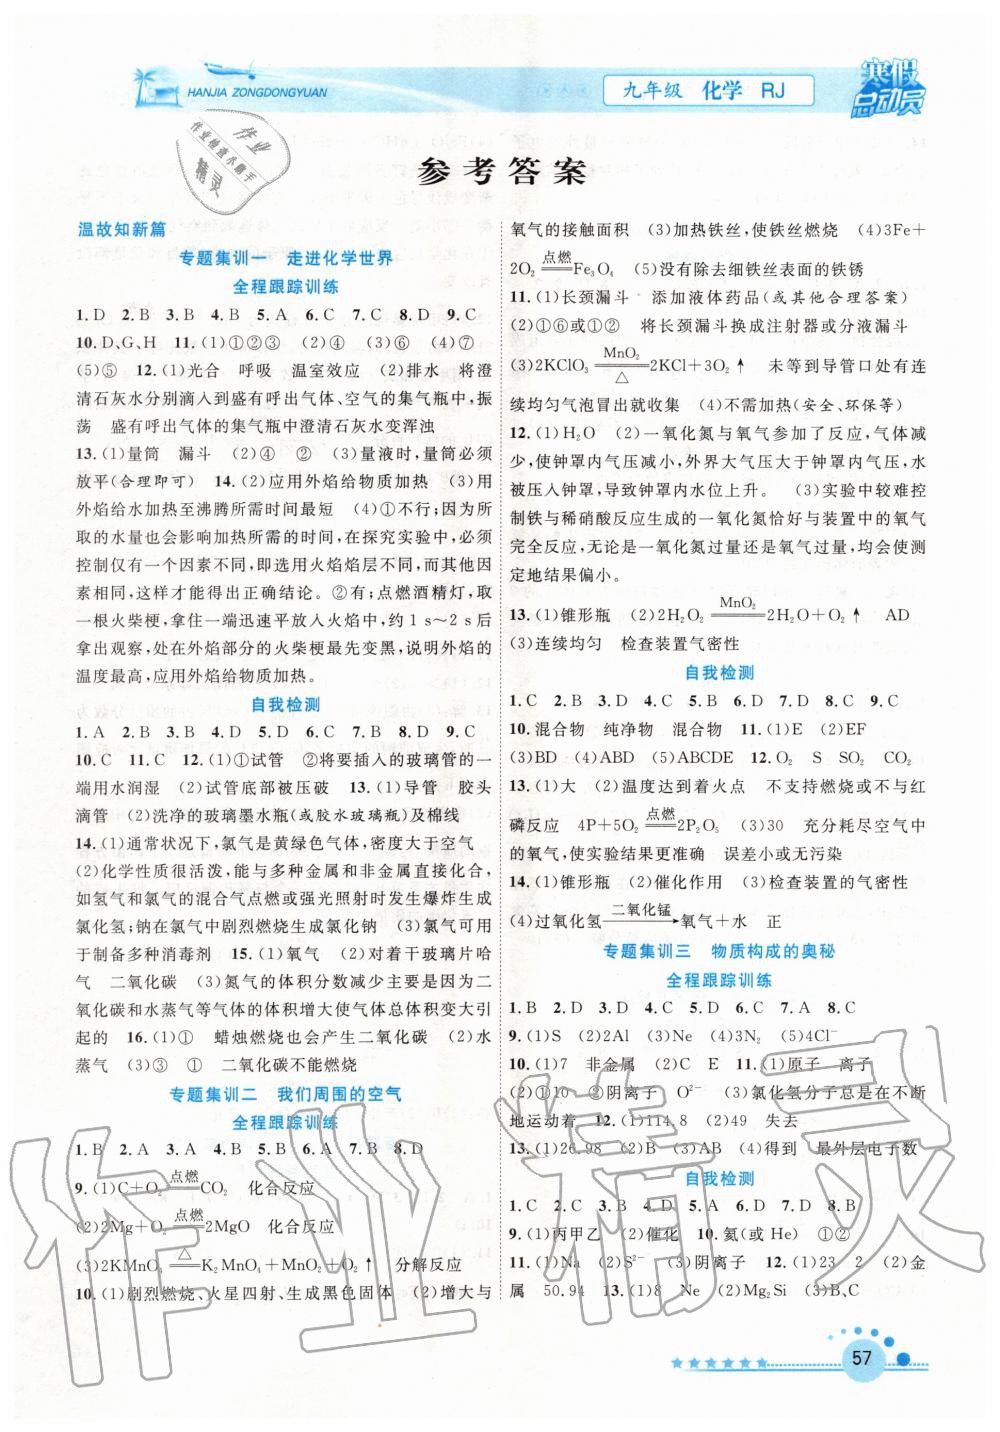 HANJIA ZONGDONGYUAN
九年级 化学 RJ
寒假
总动员
作业
作业检查小助手
精灵
参考答案
温故知新篇
专题集训一 走进化学世界
全程跟踪训练
1.D 2.B 3.B 4.B 5.A 6.C 7.C 8.D 9.C
10.D、G、H 11.(1)①②③ (2)④ (3)⑥ (4)⑦
(5)⑤ 12.(1)光合 呼吸 温室效应 (2)排水 将澄
清石灰水分别滴入到盛有呼出气体、空气的集气瓶中,振
荡 盛有呼出气体的集气瓶中澄清石灰水变浑浊
13.(1)量筒 漏斗 (2)④ ② (3)量液时,量筒必须
放平(合理即可) 14.(2)应用外焰给物质加热 (3)用
外焰给水加热至沸腾所需时间最短 (4)①不行;因为所
取的水量也会影响加热所需的时间,在探究实验中,必须
控制仅有一个因素不同,即选用火焰焰层不同,而其他因
素相同,这样才能得出正确结论。②有;点燃酒精灯,取
一根火柴梗,拿住一端迅速平放入火焰中,约1 s~2 s后
拿出观察,处在外焰部分的火柴梗最先变黑,说明外焰的
温度最高,应用外焰给物质加热。
自我检测
1.A 2.B 3.D 4.D 5.C 6.D 7.C 8.B 9.B
10.C 11.C 12.(1)①试管 ②将要插入的玻璃管的一
端用水润湿 (2)试管底部被压破 13.(1)导管 胶头
滴管 (2)洗净的玻璃墨水瓶(或胶水玻璃瓶)及棉线
14.(1)通常状况下,氯气是黄绿色气体,密度大于空气
(2)化学性质很活泼,能与多种金属和非金属直接化合,
如氢气和氯气的混合气点燃或强光照射时发生爆炸生成
氯化氢;钠在氯气中剧烈燃烧生成氯化钠 (3)氯气可用
于制备多种消毒剂 15.(1)氧气 (2)对着干玻璃片哈
气 二氧化碳 (3)氮气的体积分数减少主要是因为二
氧化碳和水蒸气等气体的体积增大使气体总体积变大引
起的 16.(1)① 蜡烛燃烧也会产生二氧化碳 (2)水
蒸气 (3)③ ① 二氧化碳不能燃烧
专题集训二 我们周围的空气
全程跟踪训练
1.B 2.A 3.A 4.A 5.A 6.B 7.B 8.D
9.(1)C+O₂ 点燃 CO₂ 化合反应
(2)2Mg+O₂ 点燃 2MgO 化合反应
(3)2KMnO₄ △ K₂MnO₄+MnO₂+O₂↑ 分解反应
10.(1)剧烈燃烧、火星四射、生成黑色固体 (2)增大与
氧气的接触面积 (3)加热铁丝,使铁丝燃烧 (4)3Fe+
2O₂ 点燃 Fe₃O₄ (5)没有除去细铁丝表面的铁锈
11.(1)长颈漏斗 添加液体药品(或其他合理答案)
(2)①⑥或①② 将长颈漏斗换成注射器或分液漏斗
(3)2KClO₃ MnO₂ △ 2KCl+3O₂↑ 未等到导管口处有连
续均匀气泡冒出就收集 (4)不需加热(安全、环保等)
12.(1)H₂O (2)一氧化氮与氧气参加了反应,气体减
少,使钟罩内气压减小,外界大气压大于钟罩内气压,水
被压入钟罩,导致钟罩内水位上升。 (3)实验中较难控
制铁与稀硝酸反应生成的一氧化氮恰好与装置中的氧气
完全反应,无论是一氧化氮过量还是氧气过量,均会使测
定地结果偏小。
13.(1)锥形瓶 (2)2H₂O₂ MnO₂ 2H₂O+O₂↑ AD
(3)连续均匀 检查装置气密性
自我检测
1.C 2.B 3.D 4.C 5.B 6.D 7.D 8.C 9.C
10.混合物 纯净物 混合物 11.(1)E (2)EF
(3)BD (4)ABD (5)ABCDE 12.O₂ S SO₂ CO₂
13.(1)大 (2)温度达到着火点 不支持燃烧或不与红
磷反应 4P+5O₂ 点燃 2P₂O₅ (3)30 充分耗尽空气中
的氧气,使实验结果更准确 误差小或无污染
14.(1)锥形瓶 (2)催化作用 (3)检查装置的气密性
(4)过氧化氢 二氧化锰 氧气+水 正
专题集训三 物质构成的奥秘
全程跟踪训练
1.B 2.D 3.A 4.B 5.D 6.C 7.A 8.C
9.(1)S (2)2Al (3)Ne (4)3N₂ (5)4Cl⁻
10.(1)7 非金属 (2)C E 11.(1)原子 离子
(2)①10 ②阴离子 O²⁻ (3)氯化氢分子总是在不断
地运动着 12.(1)114.8 (2)49 失去
13.(1)26.98 (2)B (3)AB (4)得到 最外层电子数
自我检测
1.C 2.C 3.B 4.C 5.D 6.D 7.D 8.B
9.(1)丙甲乙 (2)催化 10.氦(或 He) ①②
11.(1)Na (2)S²⁻ (3)阴离子 12.(1)23 2 (2)金
属 50.94 13.(1)8 Ne (2)Mg₂Si (3)B、C
57
作业精灵